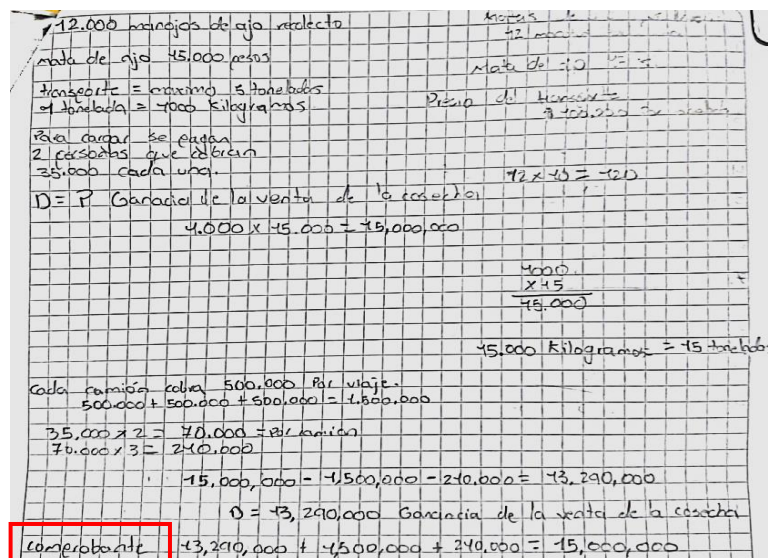 12.000 manojos de ajo recolecto
mata de ajo 15.000 pesos
transporte = maximo 5 toneladas
1 tonelada = 1000 Kilogramos
Para cargar se pagan
2 personas que cobran
35.000 cada una.
Precio del
12 x 10 = 120
D = P Ganacia de la venta de la cosecha
1.000 x 15.000 = 15,000,000
1000
x 15
15.000
15.000 Kilogramos = 15 tonelada
Cada camión cobra 500.000 Por viaje.
500.000 + 500.000 + 500.000 = 1.500.000
35.000 x 2 = 70.000 = Por camión
70.000 x 3 = 210.000
15,000,000 - 1,500,000 - 210.000 = 13,290,000
D = 13,290,000 Ganancia de la venta de la cosecha
Comprobante 13,290,000 + 1,500,000 + 210.000 = 15,000,000